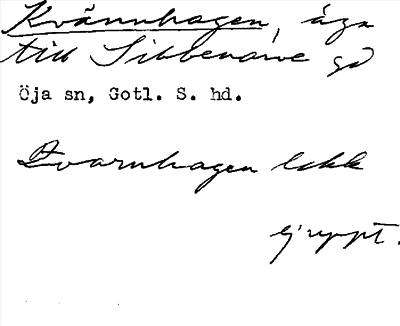 Kvännhagen, äga
till Sibbenarve gd
Öja sn, Gotl. S. hd.
Qvarnhagen Lskk
ej uppt.